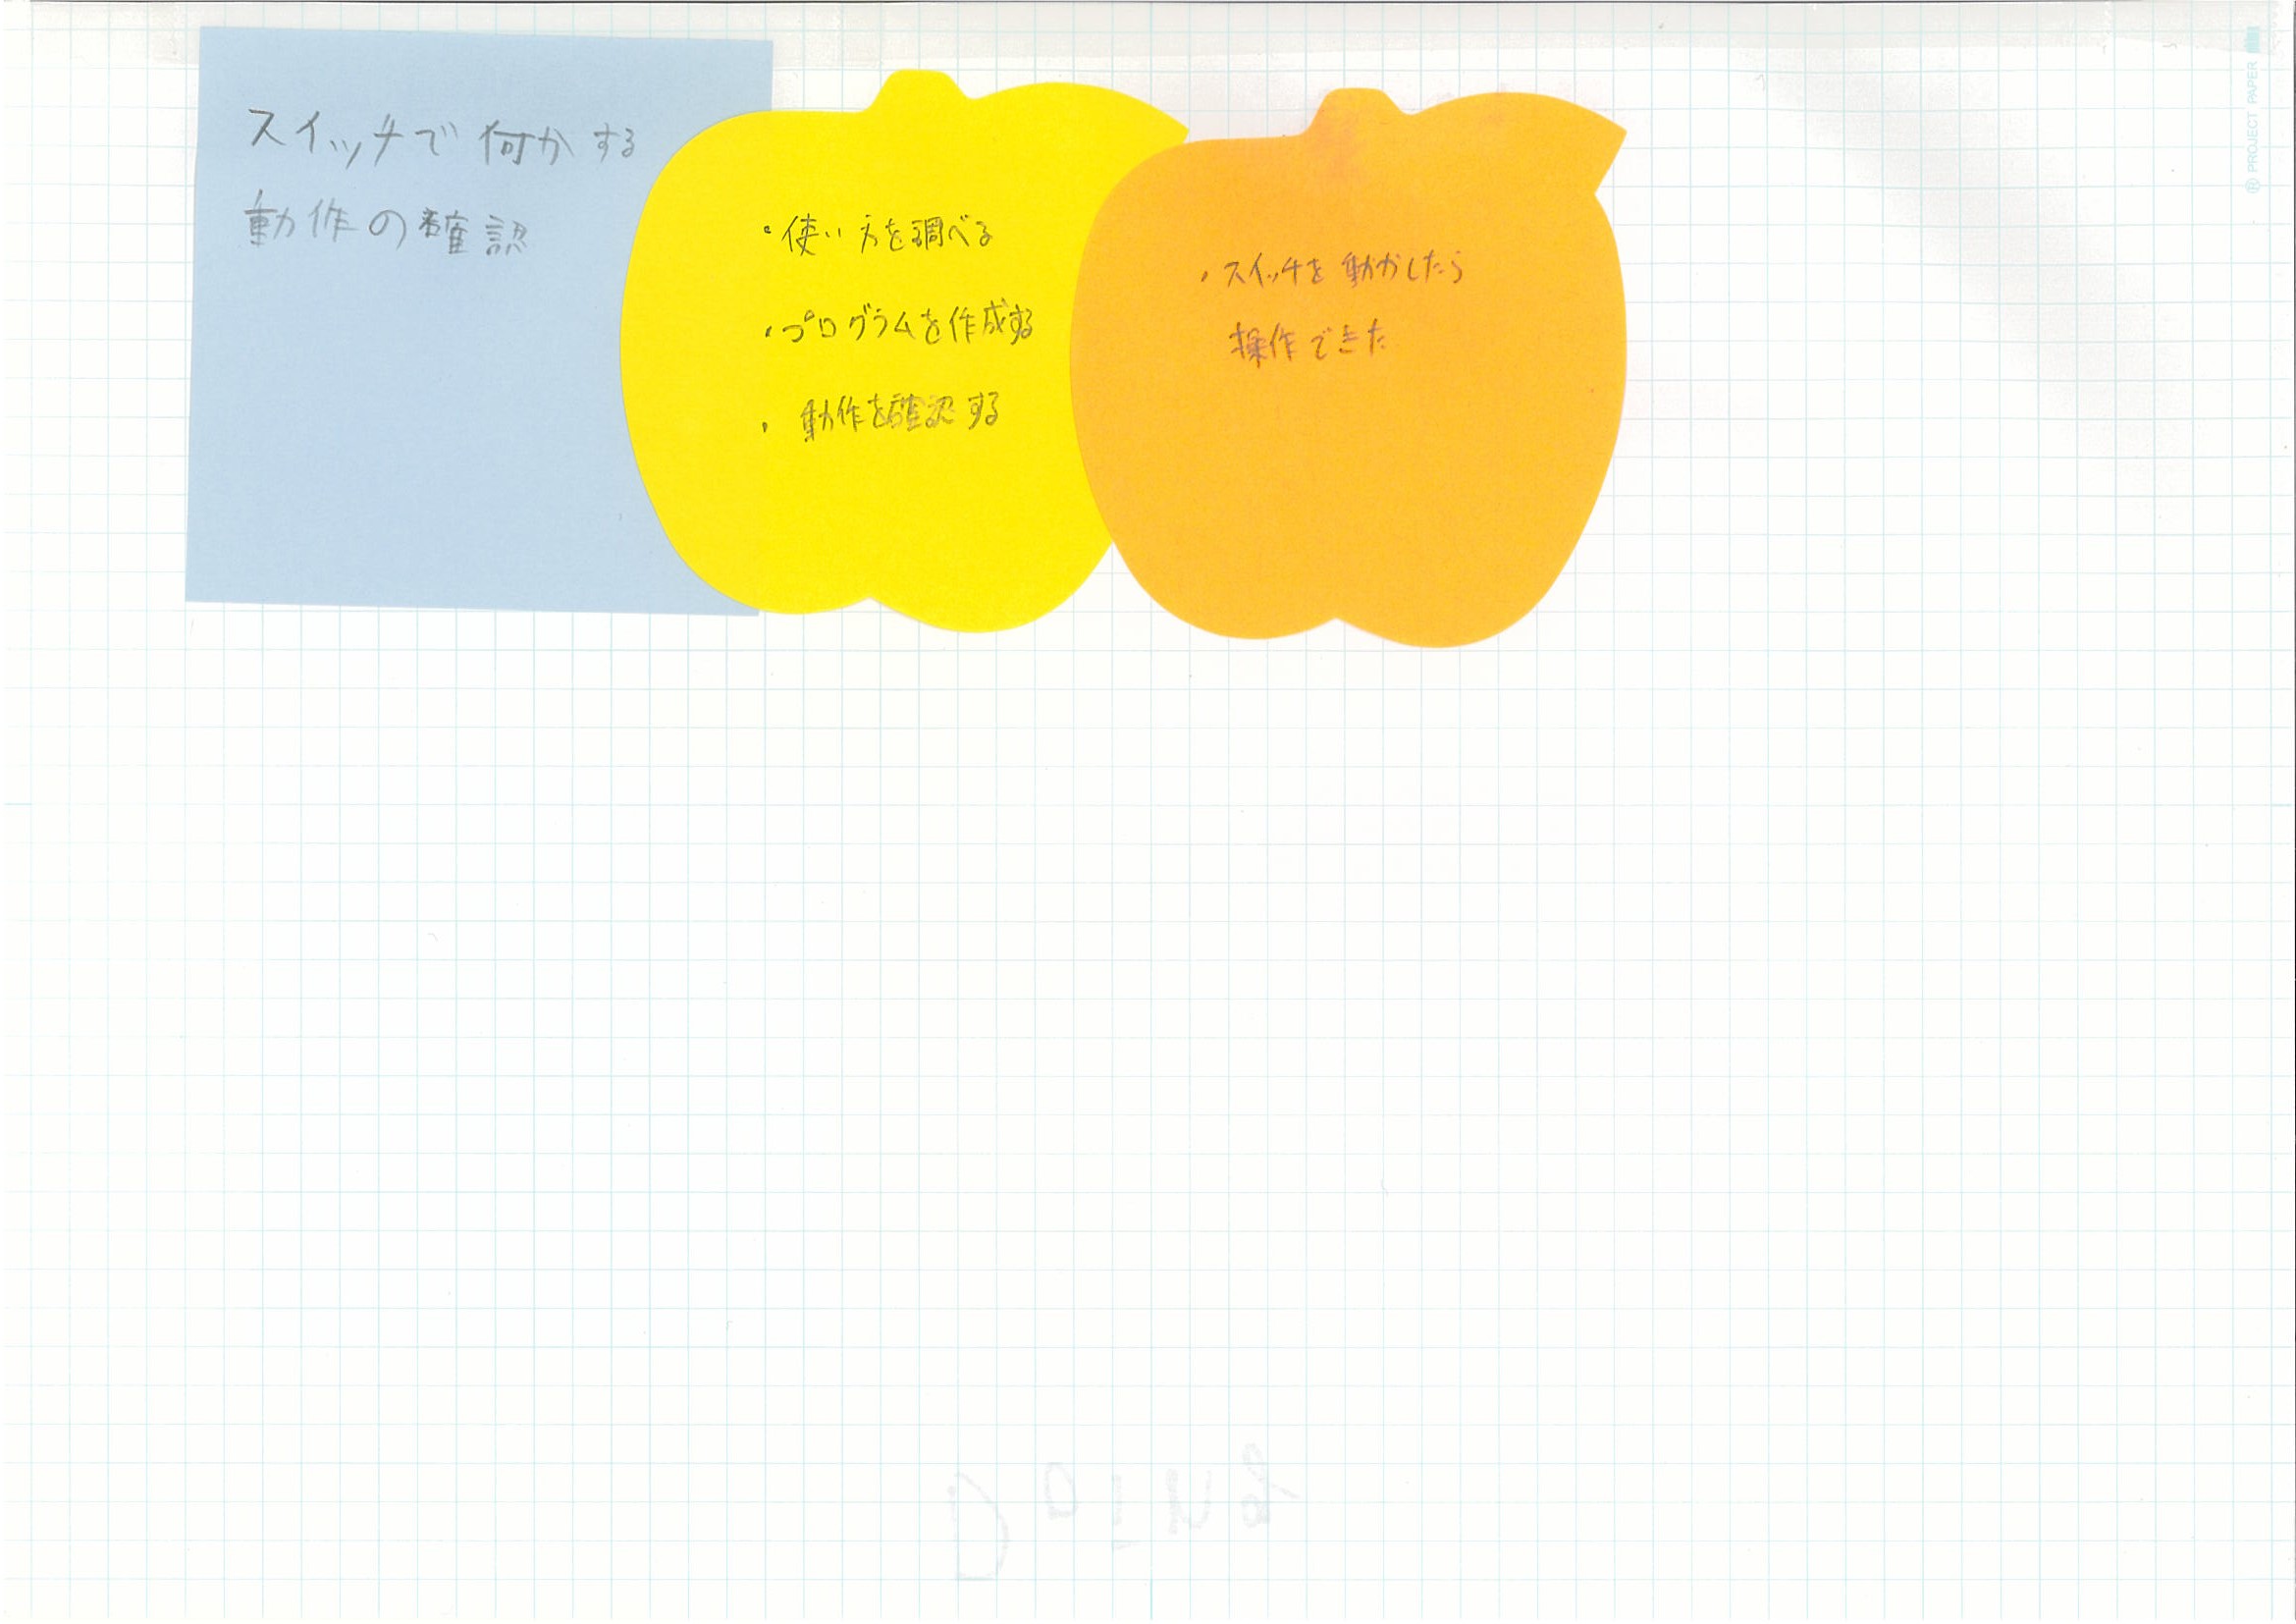 スイッチで何かする
動作の確認
・使い方を調べる
・プログラムを作成する
・動作を確認する
・スイッチを動かしたら
操作できた
PROJECT PAPER